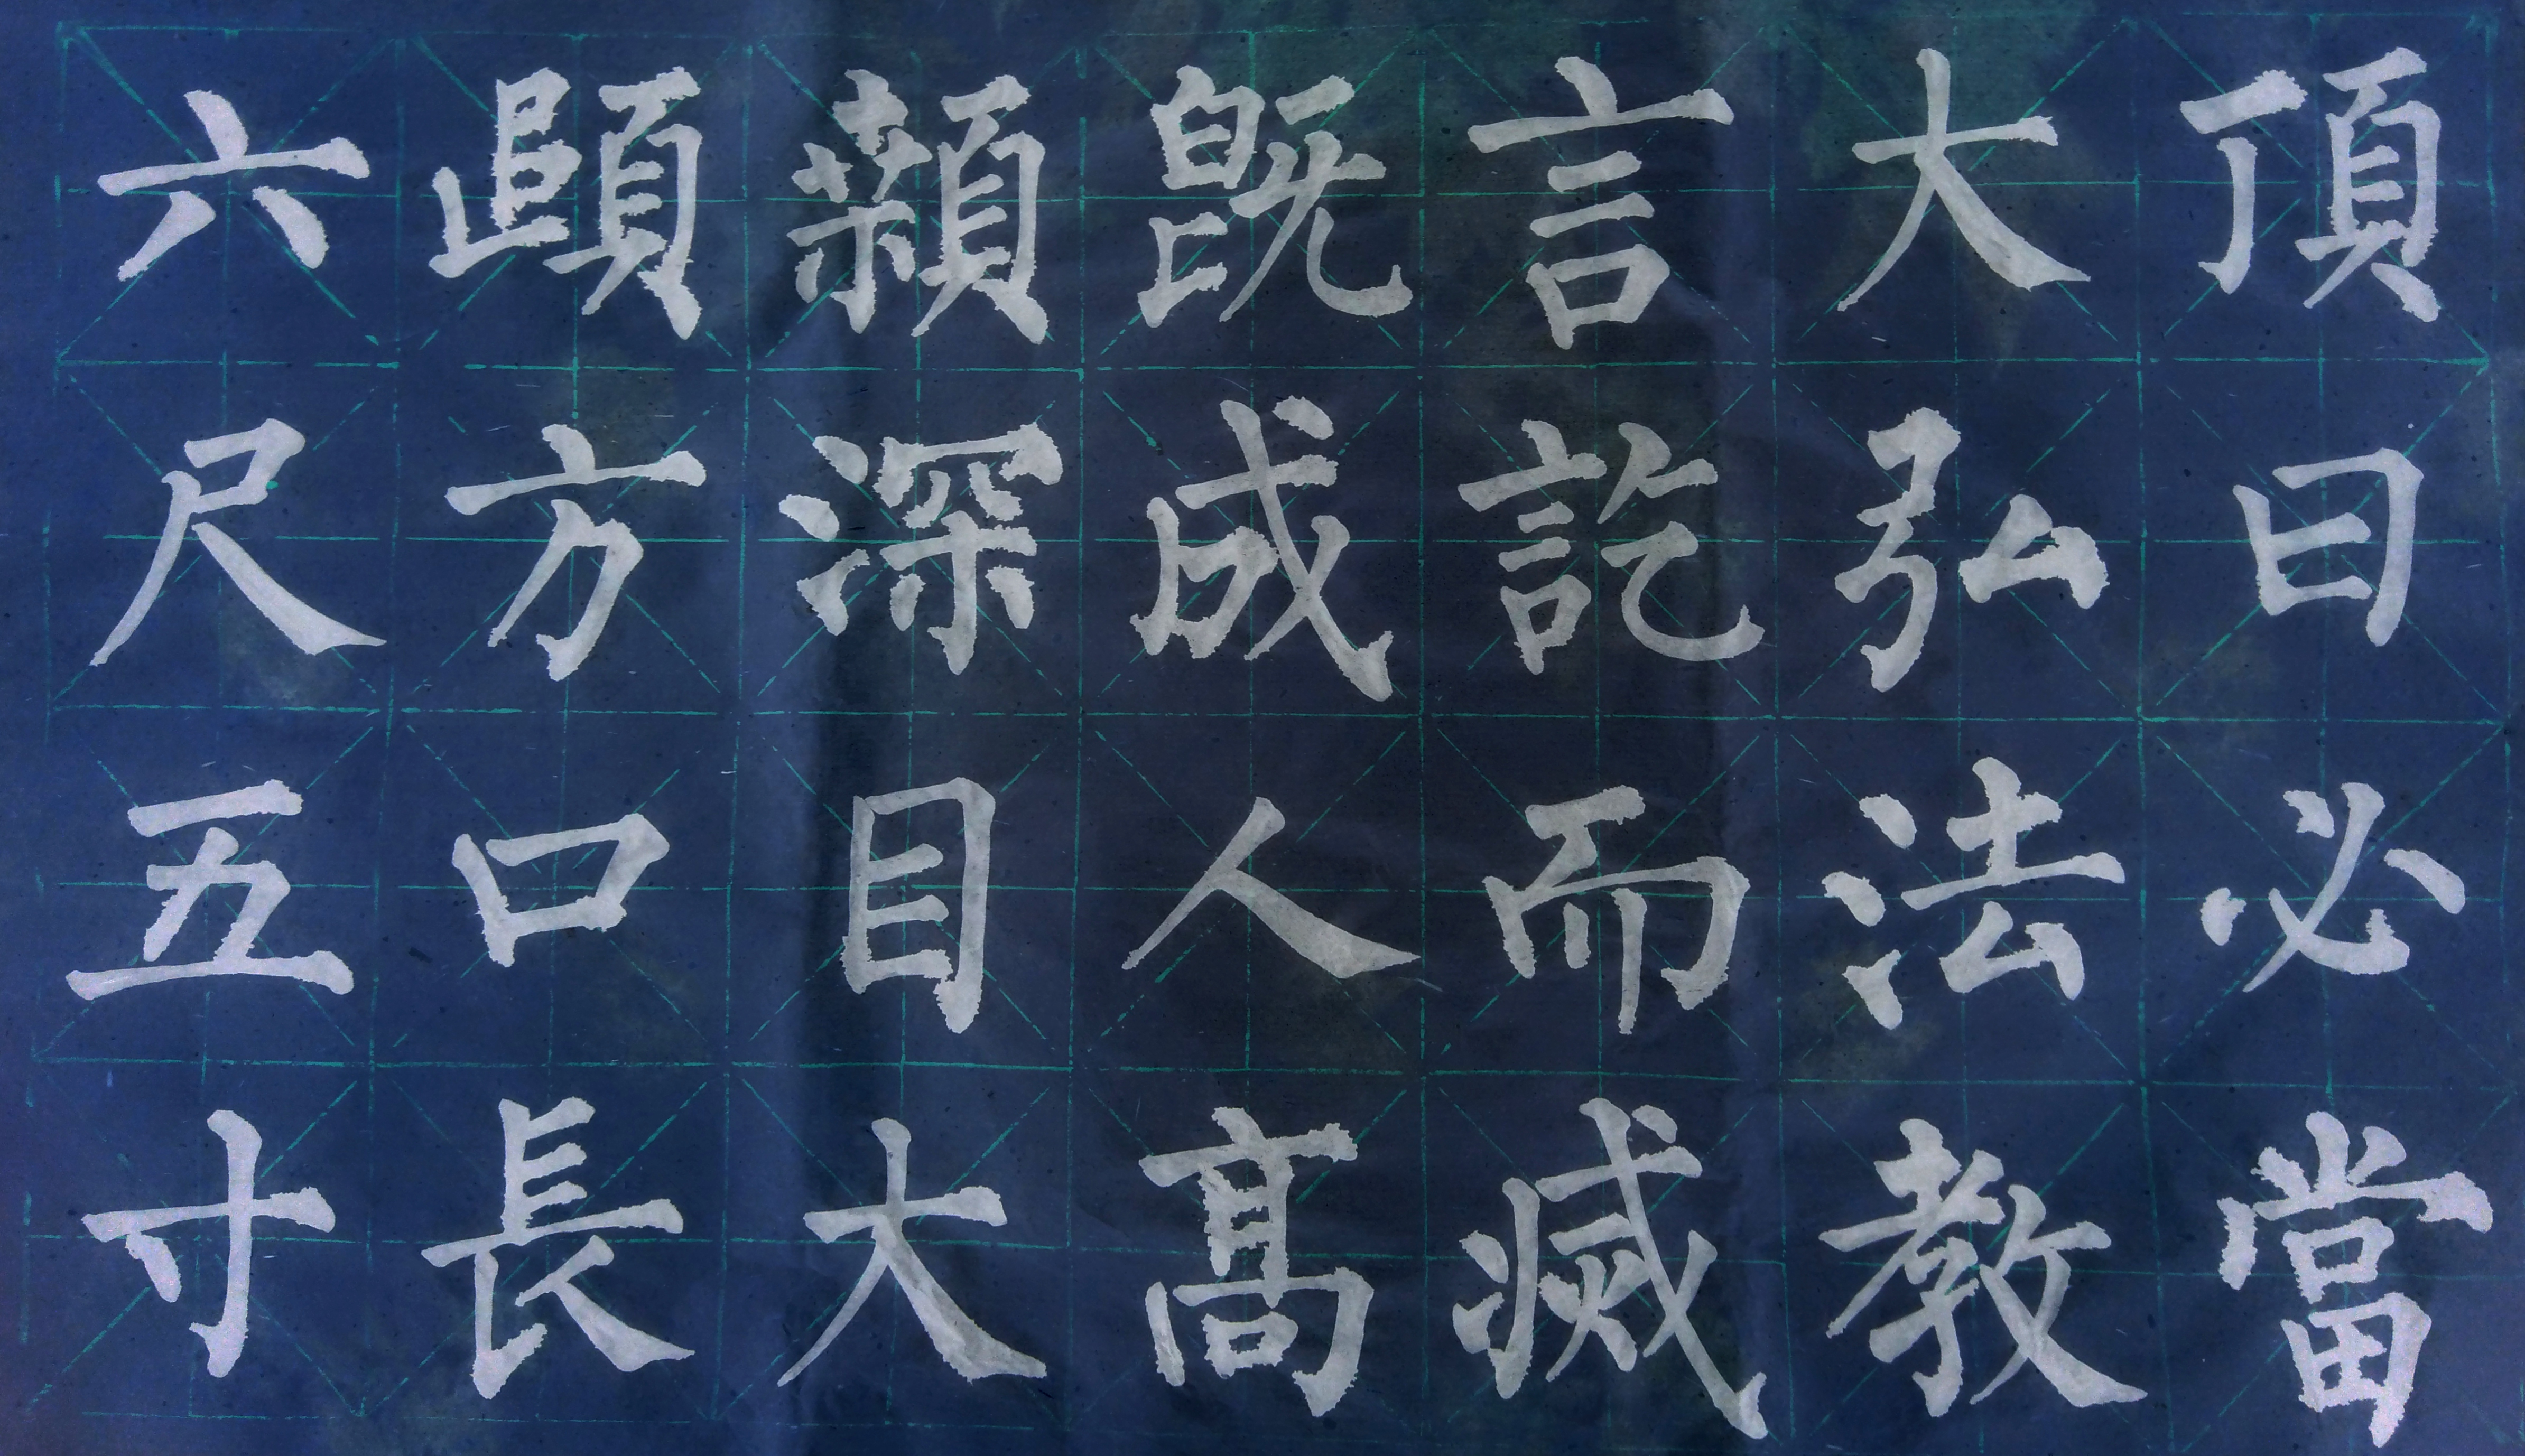 頂曰必當
大弘法教
言訖而滅
既成人髙
顙深目大
頤方口長
六尺五寸